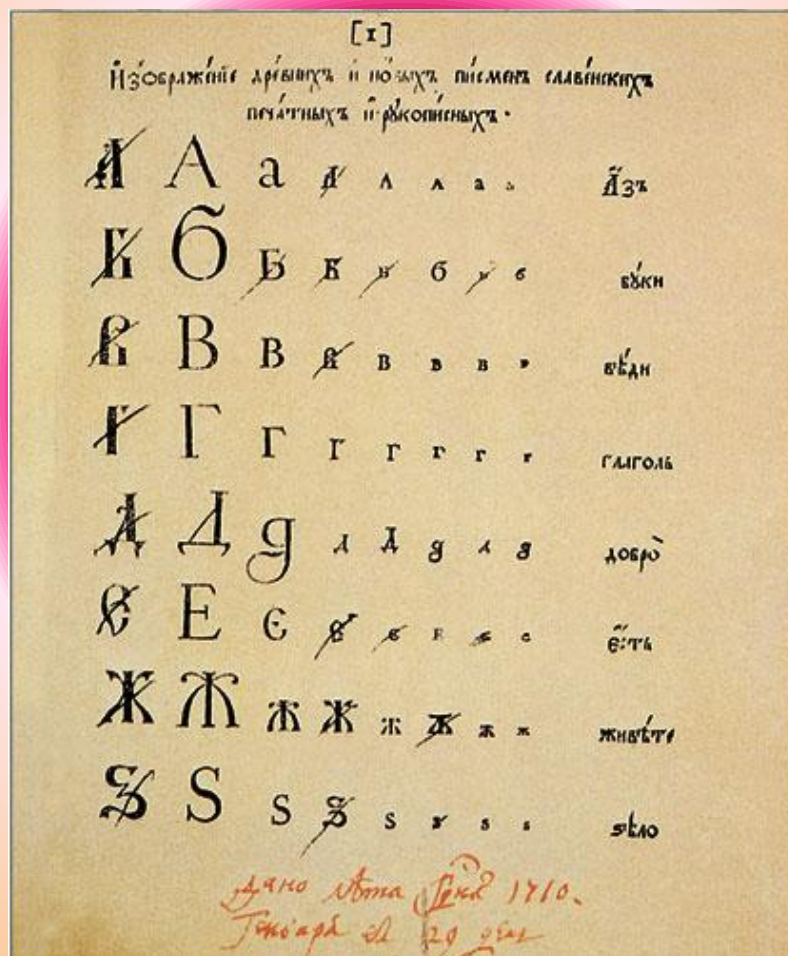 [1]
Изображе́нїе дре́внихъ и но́выхъ пи́сменъ славе́нскихъ
печа́тныхъ и рꙋкопи́сныхъ.
А А а А А А а а А҆́зъ
Б Б Б Б Б б Б Б бꙋ́ки
В В В В В В В В вѣ́ди
Г Г Г Г Г Г Г Г глаго́ль
Д Д д Д Д д Д д добро̀
Є Е Є Є Є Е Є Є є҆́сть
Ж Ж Ж Ж Ж Ж Ж Ж живѣ́те
Ѕ Ѕ Ѕ Ѕ Ѕ Ѕ Ѕ Ѕ ѕѣло̀
дано лѣта 1710.
Генваря 29 дня